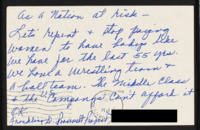 As a Nation at risk—
Let's repent & stop paying
women to have babys like
we have for the last 55 yrs.
We have a Wrestling team &
a ball team. The Middle Class
& the Companys Can't afford it
OK
Franklin D. Roosevelt